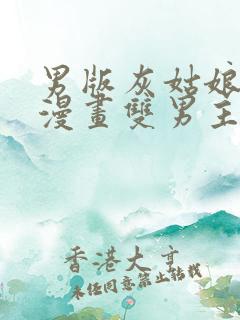 男版灰姑娘
漫畫雙男主
香港大亨
未经同意禁止转载